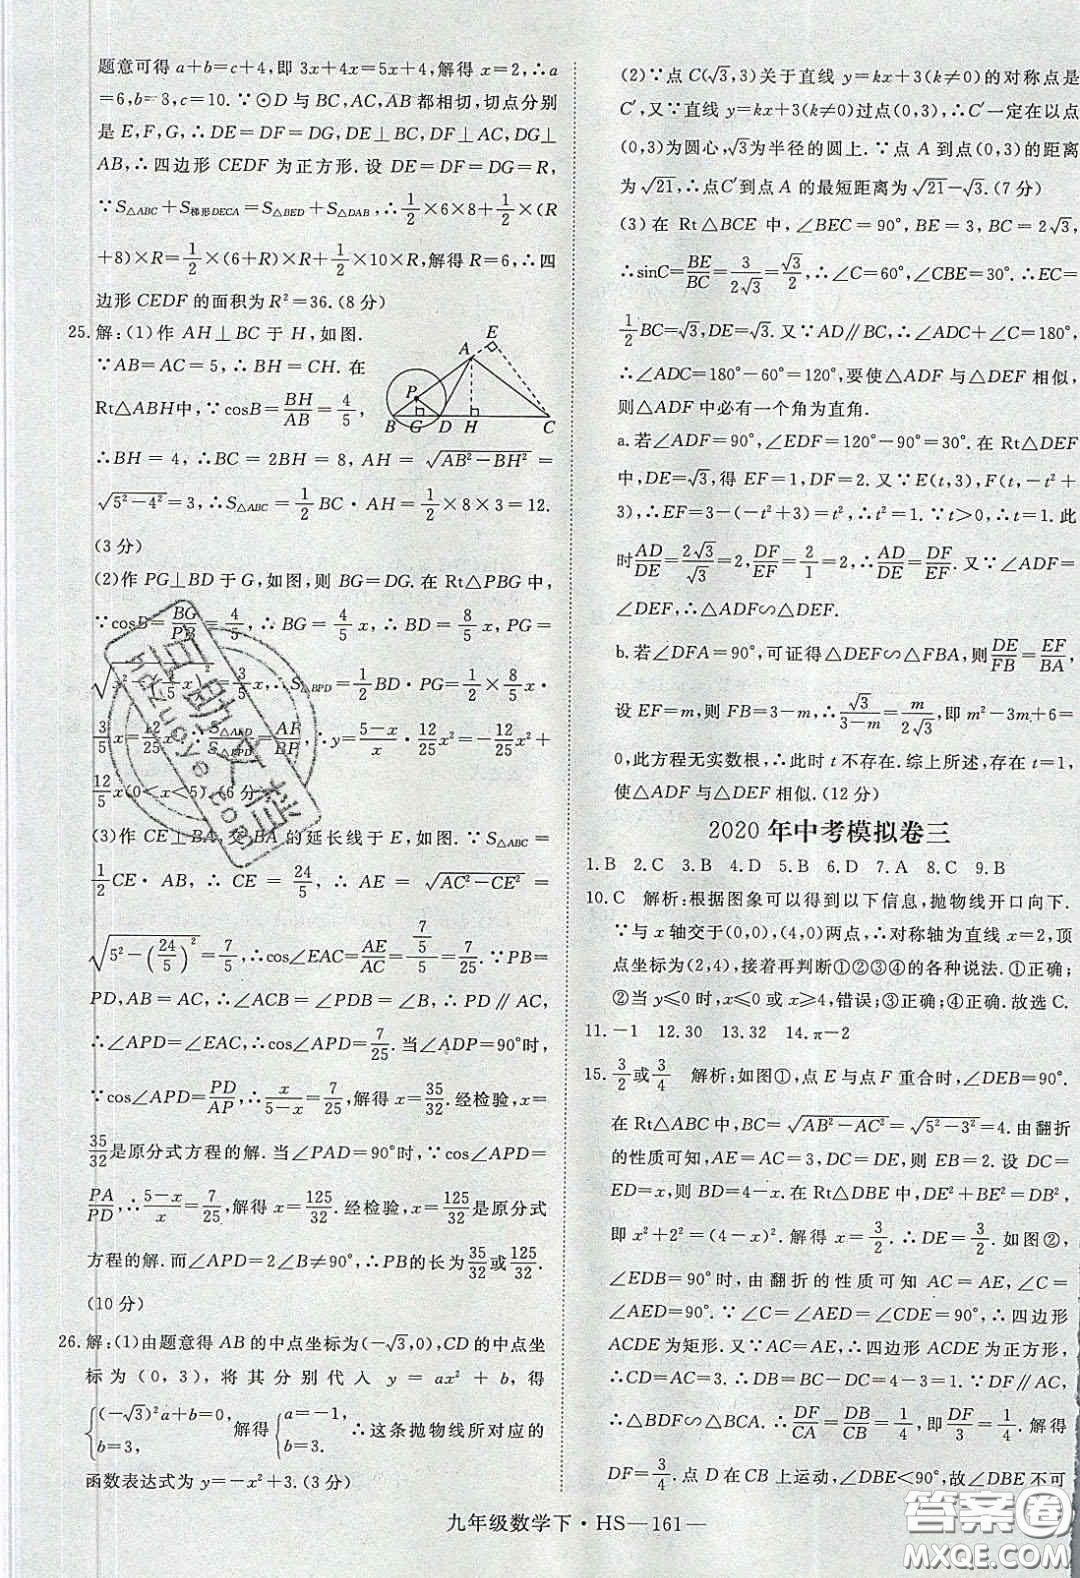 题意可得 a+b=c+4,即 3x+4x=5x+4,解得 x=2,∴a
=6,b=8,c=10.∵⊙D 与 BC,AC,AB 都相切,切点分别
是 E,F,G,∴DE=DF=DG,DE⊥BC,DF⊥AC,DG⊥
AB,∴四边形 CEDF 为正方形.设 DE=DF=DG=R,
∵S△ABC+S梯形DECA=S△BED+S△DAB,∴1/2×6×8+1/2×(R
+8)×R=1/2×(6+R)×R+1/2×10×R,解得 R=6,∴四
边形 CEDF 的面积为 R²=36.(8 分)
25.解:(1)作 AH⊥BC 于 H,如图.
∵AB=AC=5,∴BH=CH.在
Rt△ABH中,∵cosB=BH/AB=4/5,
∴BH=4,∴BC=2BH=8,AH=√(AB²-BH²)=
√(5²-4²)=3,∴S△ABC=1/2 BC·AH=1/2×8×3=12.
(3 分)
(2)作 PG⊥BD 于 G,如图,则 BG=DG.在 Rt△PBG 中,
∵cosB=BG/PB=4/5,∴BG=4/5 x,∴BD=8/5 x,PG=
3/5 x,∴S△BPD=1/2 BD·PG=1/2×8/5 x·
3/5 x=12/25 x²,∴y=(5-x)/x·12/25 x²=-12/25 x²+
12/5 x(0<x<5).(6 分)
(3)作 CE⊥BA,交 BA 的延长线于 E,如图.∵S△ABC=
1/2 CE·AB,∴CE=24/5,∴AE=√(AC²-CE²)=
√(5²-(24/5)²)=7/5,∴cos∠EAC=AE/AC=(7/5)/5=7/25.∵PB=
PD,AB=AC,∴∠ACB=∠PDB=∠B,∴PD∥AC,
∴∠APD=∠EAC,∴cos∠APD=7/25.当∠ADP=90°时,
∵cos∠APD=PD/AP,∴x/(5-x)=7/25,解得 x=35/32.经检验,x=
35/32是原分式方程的解.当∠PAD=90°时,∵cos∠APD=
PA/PD,∴(5-x)/x=7/25,解得 x=125/32.经检验,x=125/32是原分式
方程的解.而∠APD=2∠B≠90°,∴PB的长为35/32或125/32.
(10 分)
26.解:(1)由题意得 AB 的中点坐标为(-√3,0),CD 的中点坐
标为(0,3),将其分别代入 y=ax²+b,得
{(-√3)²a+b=0, b=3, 解得{a=-1, b=3. ∴这条抛物线所对应的
函数表达式为 y=-x²+3.(3 分)
A E P B G D H C
(2)∵点 C(√3,3)关于直线 y=kx+3(k≠0)的对称点是
C′,又∵直线 y=kx+3(k≠0)过点(0,3),∴C′一定在以点
(0,3)为圆心,√3为半径的圆上.∵点 A 到点(0,3)的距离
为√21,∴点C′到点 A 的最短距离为√21-√3.(7 分)
(3)在 Rt△BCE 中,∠BEC=90°,BE=3,BC=2√3,
∴sinC=BE/BC=3/(2√3)=√3/2,∴∠C=60°,∠CBE=30°.∴EC=
1/2 BC=√3,DE=√3.又∵AD∥BC,∴∠ADC+∠C=180°,
∴∠ADC=180°-60°=120°,要使△ADF 与△DEF 相似,
则△ADF 中必有一个角为直角.
a.若∠ADF=90°,∠EDF=120°-90°=30°.在 Rt△DEF
中,DE=√3,得 EF=1,DF=2.又∵E(t,3),F(t,-t²+
3),∴EF=3-(-t²+3)=t²,∴t²=1.∵t>0,∴t=1.此
时AD/DE=2√3/√3=2,DF/EF=2/1=2,∴AD/DE=DF/EF.又∵∠ADF=
∠DEF,∴△ADF∽△DEF.
b.若∠DFA=90°,可证得△DEF∽△FBA,则DE/FB=EF/BA,
设 EF=m,则 FB=3-m,∴√3/(3-m)=m/(2√3),即 m²-3m+6=
0,此方程无实数根,∴此时 t 不存在.综上所述,存在 t=1,
使△ADF 与△DEF 相似.(12 分)
2020 年中考模拟卷三
1.B 2.C 3.B 4.D 5.B 6.D 7.A 8.C 9.B
10.C 解析:根据图象可以得到以下信息,抛物线开口向下.
∵与 x 轴交于(0,0),(4,0)两点,∴对称轴为直线 x=2,顶
点坐标为(2,4),接着再判断①②③④的各种说法.①正确;
②当 y≤0 时,x≤0 或 x≥4,错误;③正确;④正确.故选 C.
11.-1 12.30 13.32 14.π-2
15.3/2或3/4 解析:如图①,点 E 与点 F 重合时,∠DEB=90°.
在 Rt△ABC 中,BC=√(AB²-AC²)=√(5²-3²)=4.由翻折
的性质可知,AE=AC=3,DC=DE,则 EB=2.设 DC=
ED=x,则 BD=4-x.在 Rt△DBE 中,DE²+BE²=DB²,
即 x²+2²=(4-x)².解得 x=3/2.∴DE=3/2.如图②,
∠EDB=90°时,由翻折的性质可知 AC=AE,∠C=
∠AED=90°.∵∠C=∠AED=∠CDE=90°,∴四边形
ACDE 为矩形.又∵AC=AE,∴四边形 ACDE 为正方形,
∴CD=AC=3.∴DB=BC-DC=4-3=1.∵DF∥AC,
∴△BDF∽△BCA.∴DF/CA=DB/CB=1/4,即DF/3=1/4.解得
DF=3/4.点 D 在 CB 上运动,∠DBE<90°,故∠DBE 不可
九年级数学下·HS—161—
答案圈
MXQE.COM